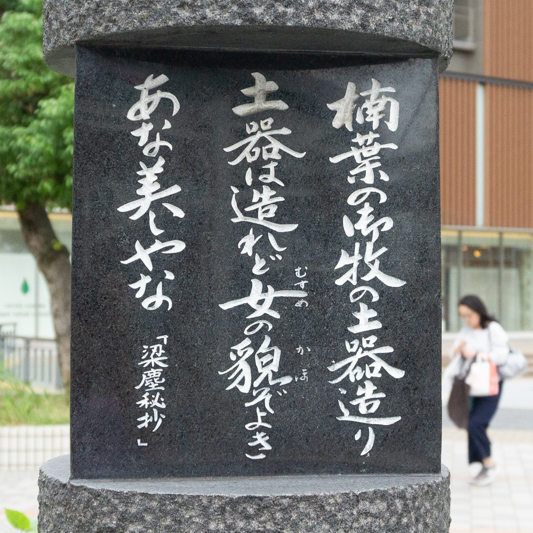 楠葉の御牧の土器造り
土器は造れど女の貌ぞよき
むすめ
かほ
あな美しやな
「梁塵秘抄」